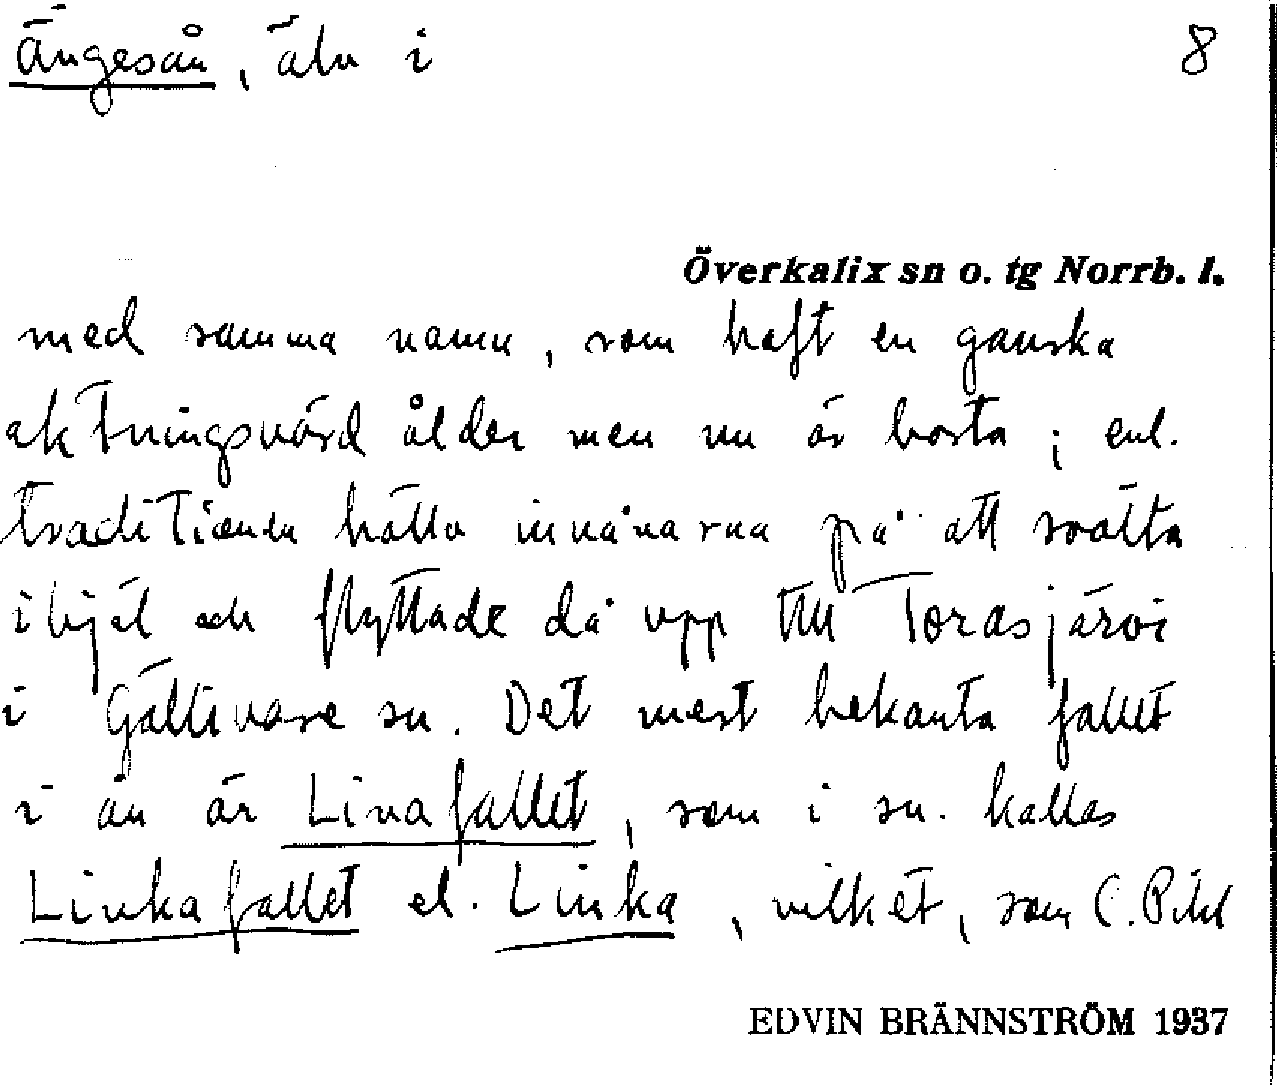 Ängesån, älv i 8
Överkalix sn o. tg Norrb. l.
med samma namn, som haft en ganska
aktningsvärd ålder men nu är borta; enl.
traditionen hålla invånarna på att svälta
ihjäl och flyttade då upp till Torasjärvi
i Gällivare sn. Det mest bekanta fallet
i ån är Linafallet, som i sn. kallas
Linkafallet el. Linka, vilket, som C. Pihl
EDVIN BRÄNNSTRÖM 1937